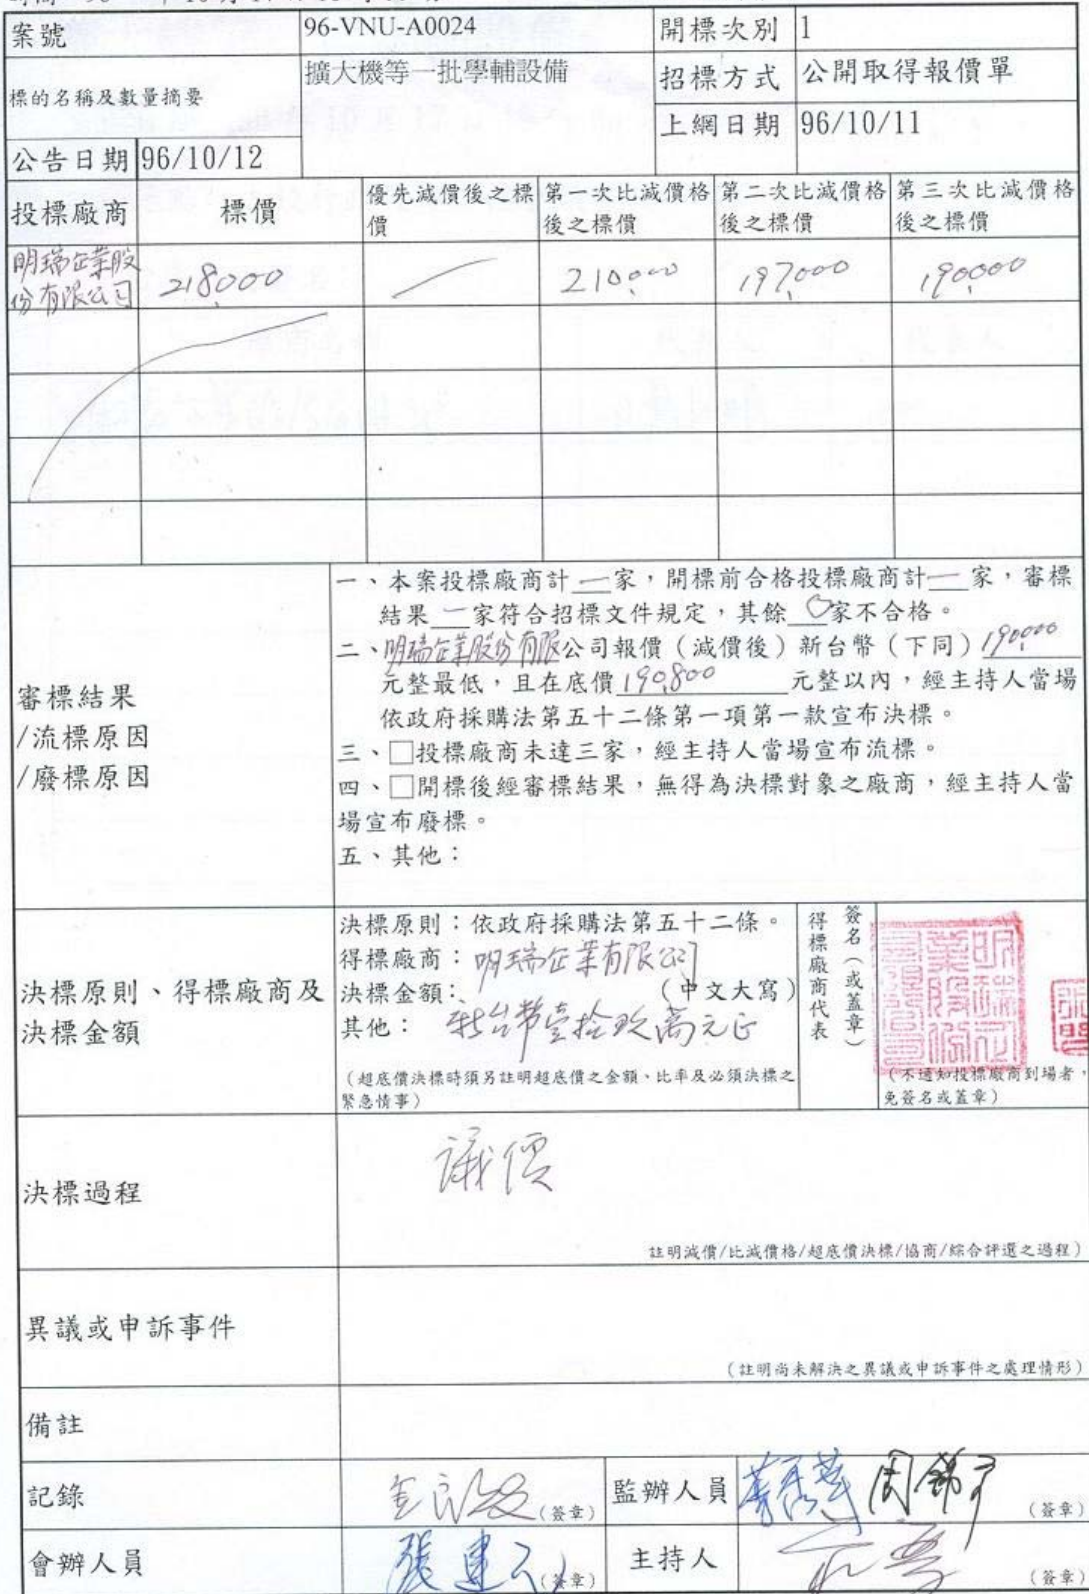 案號 96-VNU-A0024 開標次別 1
標的名稱及數量摘要 擴大機等一批學輔設備 招標方式 公開取得報價單
上網日期 96/10/11
公告日期 96/10/12
投標廠商 標價 優先減價後之標價 第一次比減價格後之標價 第二次比減價格後之標價 第三次比減價格後之標價
明瑞企業股
份有限公司 218,000 210,000 197,000 190,000
審標結果
/流標原因
/廢標原因
一、本案投標廠商計一家,開標前合格投標廠商計一家,審標
結果一家符合招標文件規定,其餘0家不合格。
二、明瑞企業股份有限公司報價(減價後)新台幣(下同)190,000
元整最低,且在底價190,800元整以內,經主持人當場
依政府採購法第五十二條第一項第一款宣布決標。
三、□投標廠商未達三家,經主持人當場宣布流標。
四、□開標後經審標結果,無得為決標對象之廠商,經主持人當
場宣布廢標。
五、其他:
決標原則、得標廠商及
決標金額
決標原則:依政府採購法第五十二條。
得標廠商:明瑞企業有限公司
決標金額: (中文大寫)
其他: 新台幣壹拾玖萬元正
(超底價決標時須另註明超底價之金額、比率及必須決標之
緊急情事)
得標廠商代表
簽名(或蓋章)
(不通知投標廠商到場者,
免簽名或蓋章)
決標過程 議價
註明減價/比減價格/超底價決標/協商/綜合評選之過程)
異議或申訴事件
(註明尚未解決之異議或申訴事件之處理情形)
備註
記錄 (簽章) 監辦人員 (簽章)
會辦人員 (簽章) 主持人 (簽章)